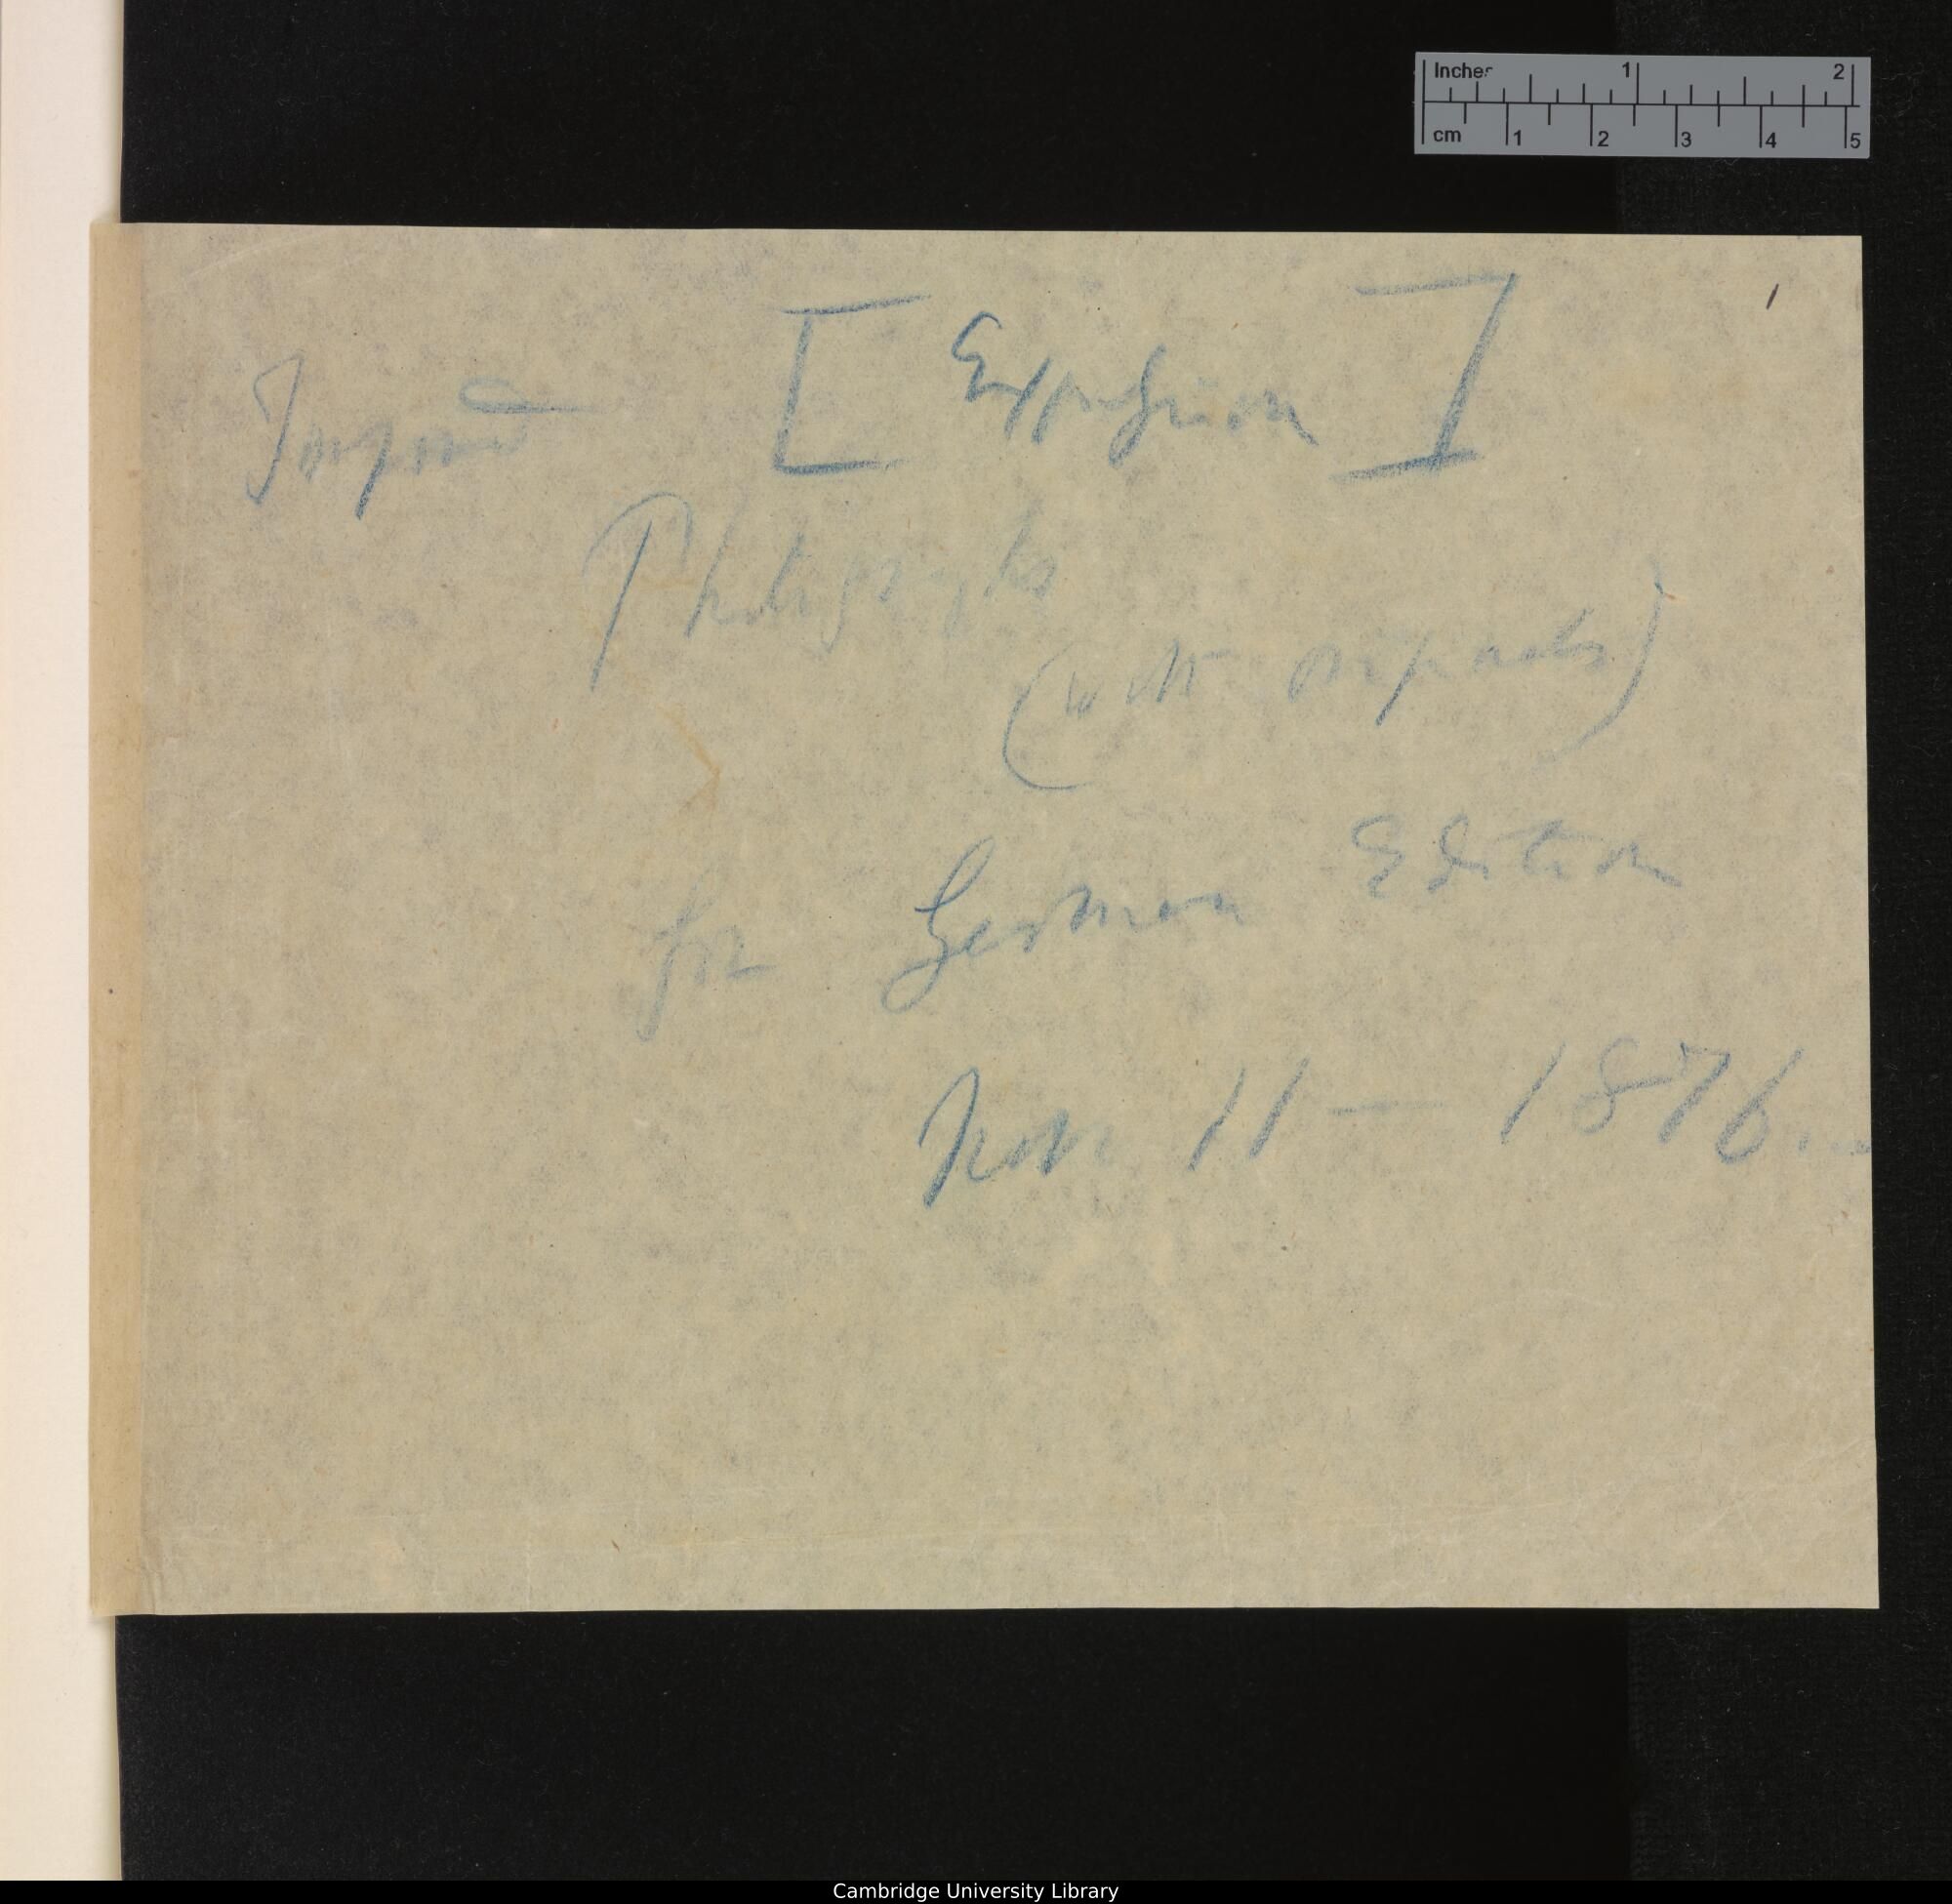 Inches 1 2
cm 1 2 3 4 5
1
[Expression]
Photographs
(with
for German Edition
Nov 11 — 1876
Cambridge University Library